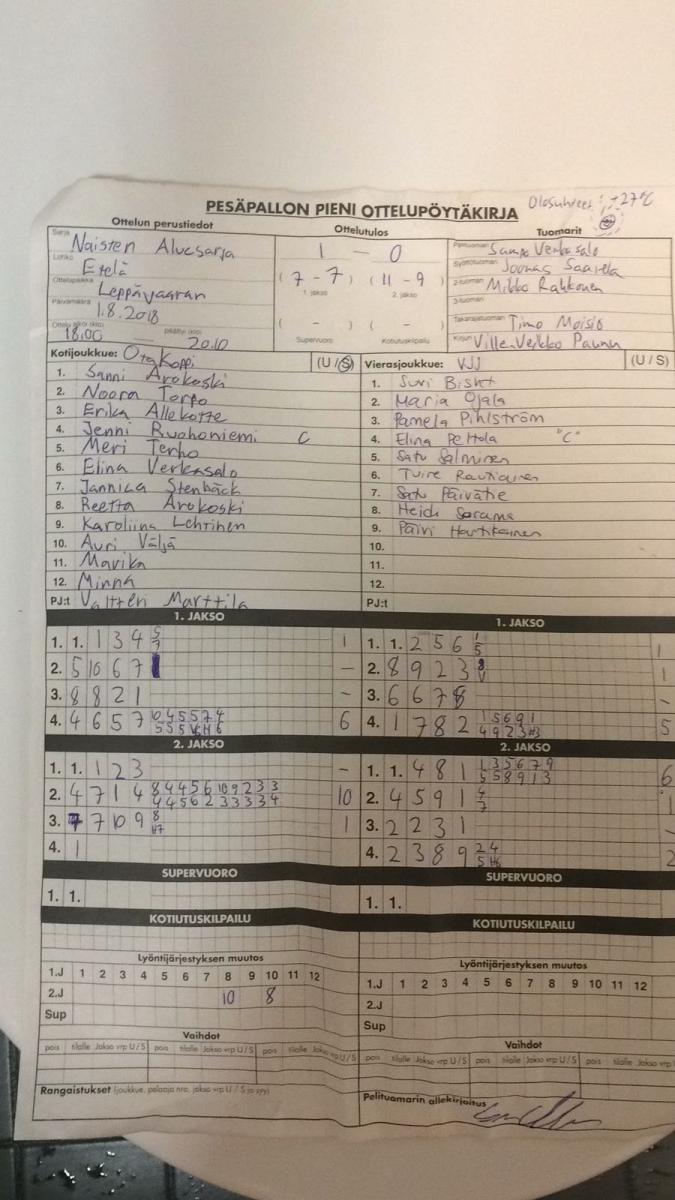 PESÄPALLON PIENI OTTELUPÖYTÄKIRJA Olosuhteet: +27°C
Ottelun perustiedot Ottelutulos Tuomarit
Sarja Naisten Aluesarja 1 — 0 Pelituomari Sampo Verkasalo
Lohko Etelä (7 - 7) (11 - 9) Syöttötuomari Joonas Saarela
1. jakso 2. jakso
Ottelupaikka Leppävaaran 2-tuomari Mikko Rahkonen
Päivämäärä 1.8.2018 3-tuomari
Ottelu alkoi (klo) 18.00 — päättyi (klo) 20.10 ( - ) ( - ) Takarajatuomari Timo Moisio
Supervuoro Kotiutuskilpailu Kirjuri Ville-Veikko
Kotijoukkue: OtaKoppi (U / S) Vierasjoukkue: VJJ (U / S)
1. Sanni Arokoski 1. Suvi Bisht
2. Noora Torpo 2. Maria Ojala
3. Erika Allekotte 3. Pamela Pihlström
4. Jenni Ruohoniemi C 4. Elina Peltola "C"
5. Meri Terho 5. Satu Salminen
6. Elina Verkasalo 6. Tuire Rautiainen
7. Jannica Stenbäck 7. Satu Päivätie
8. Reetta Arokoski 8. Heidi Sarama
9. Karoliina Lehtinen 9. Päivi Hartikainen
10. Auri Väljä 10.
11. Marika 11.
12. Minna 12.
PJ:t Valtteri Marttila PJ:t
1. JAKSO 1. JAKSO
1. 1. 1 3 4 5 7 1 1. 1. 2 5 6 1 5 1
2. 5 10 6 7 - 2. 8 9 2 3 8 V 1
3. 8 8 2 1 - 3. 6 6 7 8 -
4. 4 6 5 7 10 4 5 5 7 4 6 4. 1 7 8 2 1 5 6 9 1 5
5 5 5 H 6 4 9 2 3 H3
2. JAKSO 2. JAKSO
1. 1. 1 2 3 - 1. 1. 4 8 1 1 3 5 6 7 9 6
5 5 8 9 1 3
2. 4 7 1 4 8 4 4 5 6 10 9 2 3 3 10 2. 4 5 9 1 4 7 1
4 4 5 6 2 3 3 3 3 4
3. 7 7 10 9 8 H7 1 3. 2 2 3 1 -
4. 1 4. 2 3 8 9 2 4 2
5 H6
SUPERVUORO SUPERVUORO
1. 1. 1. 1.
KOTIUTUSKILPAILU KOTIUTUSKILPAILU
Lyöntijärjestyksen muutos Lyöntijärjestyksen muutos
1.J 1 2 3 4 5 6 7 8 9 10 11 12 1.J 1 2 3 4 5 6 7 8 9 10 11 12
2.J 10 8 2.J
Sup Sup
Vaihdot Vaihdot
pois tilalle Jakso vrp U / S pois tilalle Jakso vrp U / S pois tilalle Jakso vrp U / S pois tilalle Jakso vrp U / S pois tilalle Jakso vrp U / S pois tilalle Jakso vrp
Rangaistukset (joukkue, pelaaja nro, jakso vrp U / S ja syy) Pelituomarin allekirjoitus